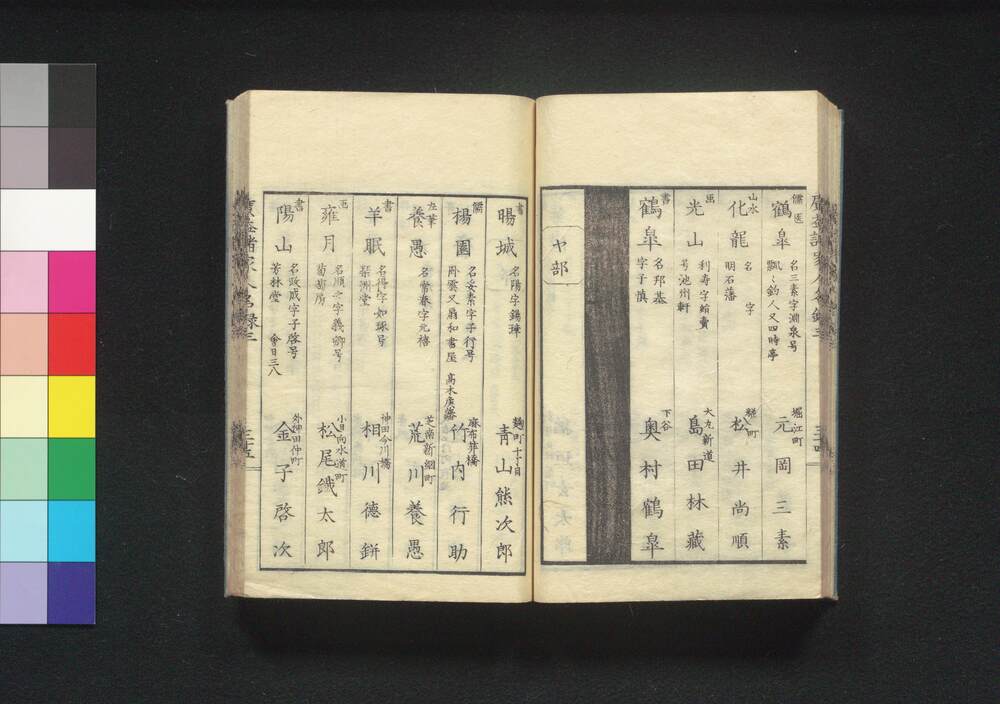 儒医 鶴皐 名三素字淵泉号
瓢々釣人又四時亭
堀江町 元岡三素
山水 化龍 名 字
明石藩
麹町 松井尚順
画 光山 利寿字
号池州軒
大丸新道 島田林蔵
書 鶴皐 名邦基
字子慎
下谷 奥村鶴皐
ヤ部
書 暘城 名陽字錫璋
麹町十丁目 青山熊次郎
儒 楊園 名妥素字子行号
臥雲又扇和書屋 高木広藩
麻布井橋 竹内行助
左筆 養愚 名常春字元禧
芝南新網町 荒川養愚
書 羊眠 名得字如琢号
琴洲堂
神田今川橋 相川徳鉼
画 雍月 名順之字義卿号
菊寿房
小日向水道町 松尾鐡太郎
書 陽山 名政成字子啓号
芳林堂 會日三八
外神田仲町 金子啓次
廣益諸家人名録三
三十五